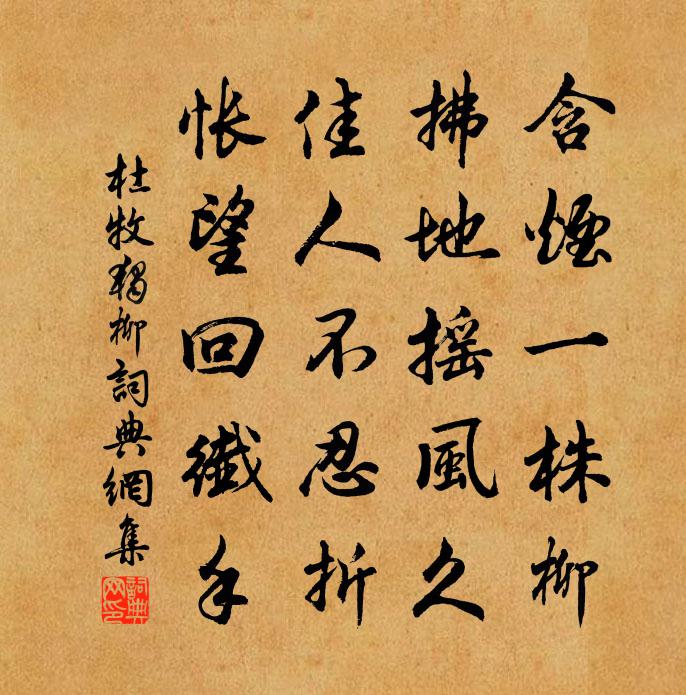 含煙一株柳
拂地摇風久
佳人不忍折
悵望回纖手
杜牧獨柳詞典網集
詞典網印